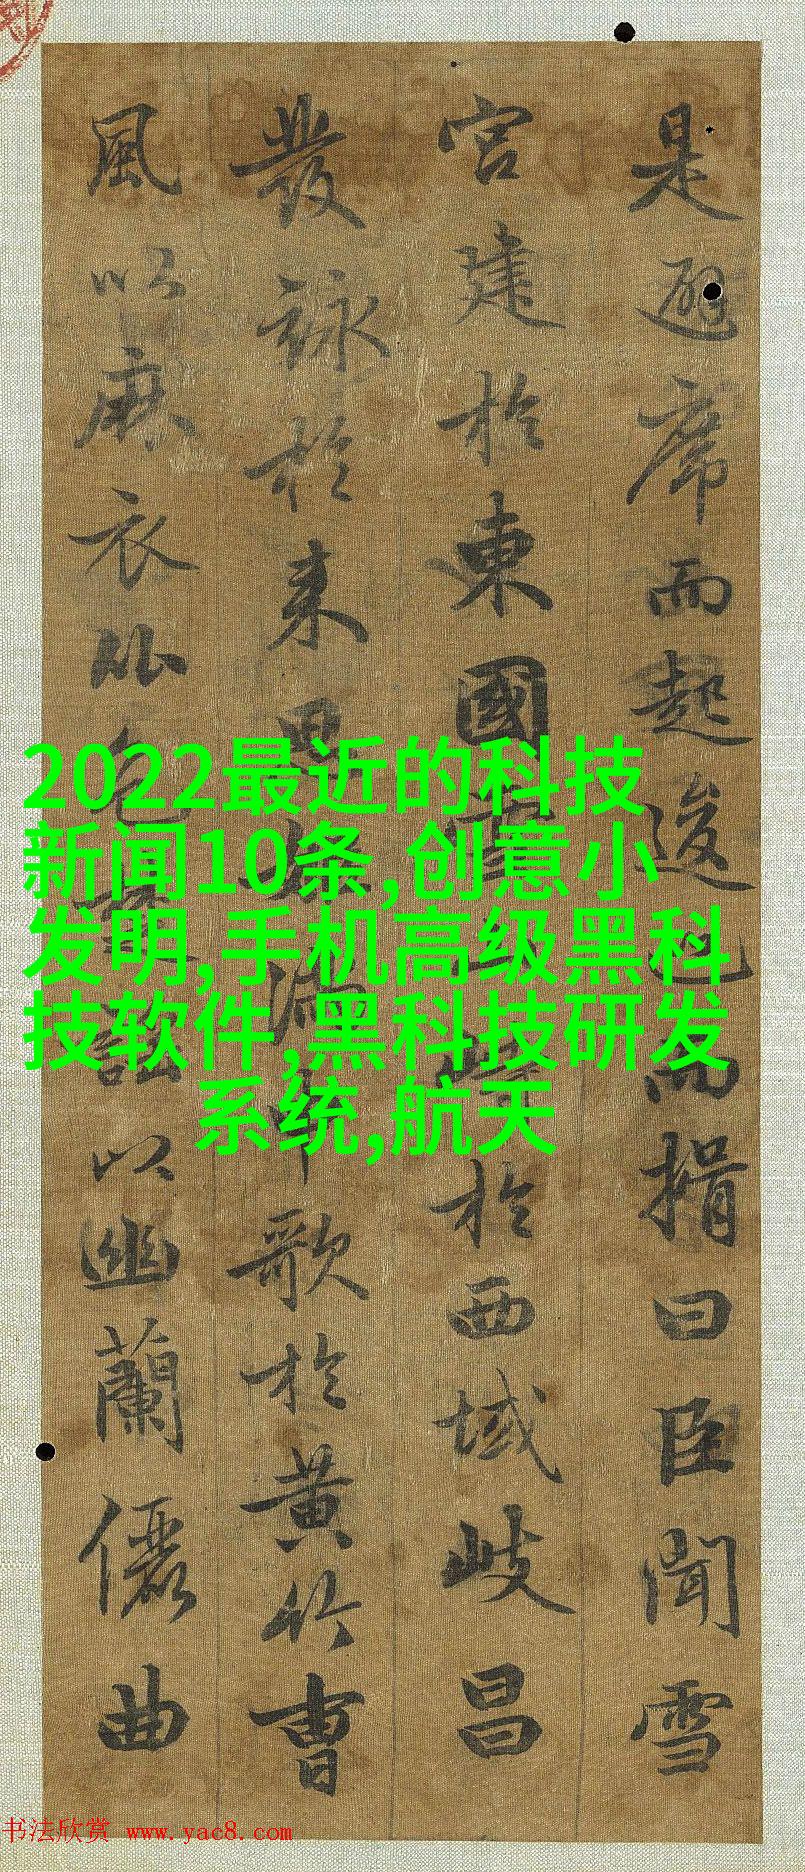 2022最近的科技
新闻10条,创意小
发明,手机高级黑科
技软件,黑科技研发
系统,航天
是避席而起逡巡而揖曰臣聞雪
宮建於東國於西域岐昌
發詠於來思滿申歌於黃竹曹
風以麻衣比色以幽蘭儷曲
书法欣赏 www.yac8.com